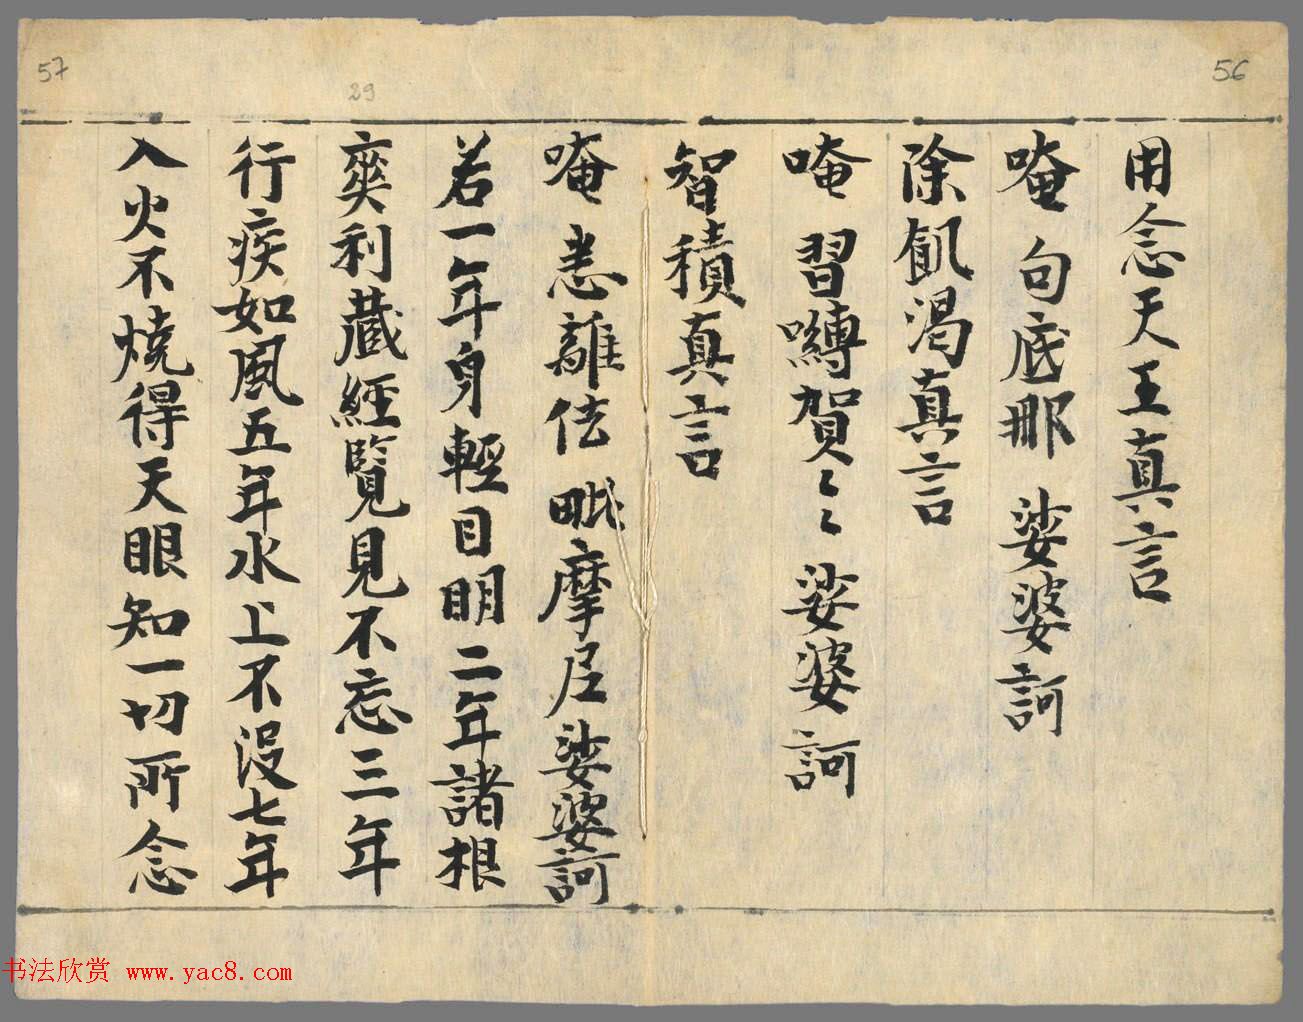 56
用念天王真言
唵 句底那 娑婆訶
除飢渴真言
唵 習嚩賀〻〻 娑婆訶
智積真言
57
29
唵 恚離佉 毗摩尼娑婆訶
若一年身輕目明二年諸根
爽利藏經覽見不忘三年
行疾如風五年水上不沒七年
入火不燒得天眼知一切所念
书法欣赏 www.yac8.com